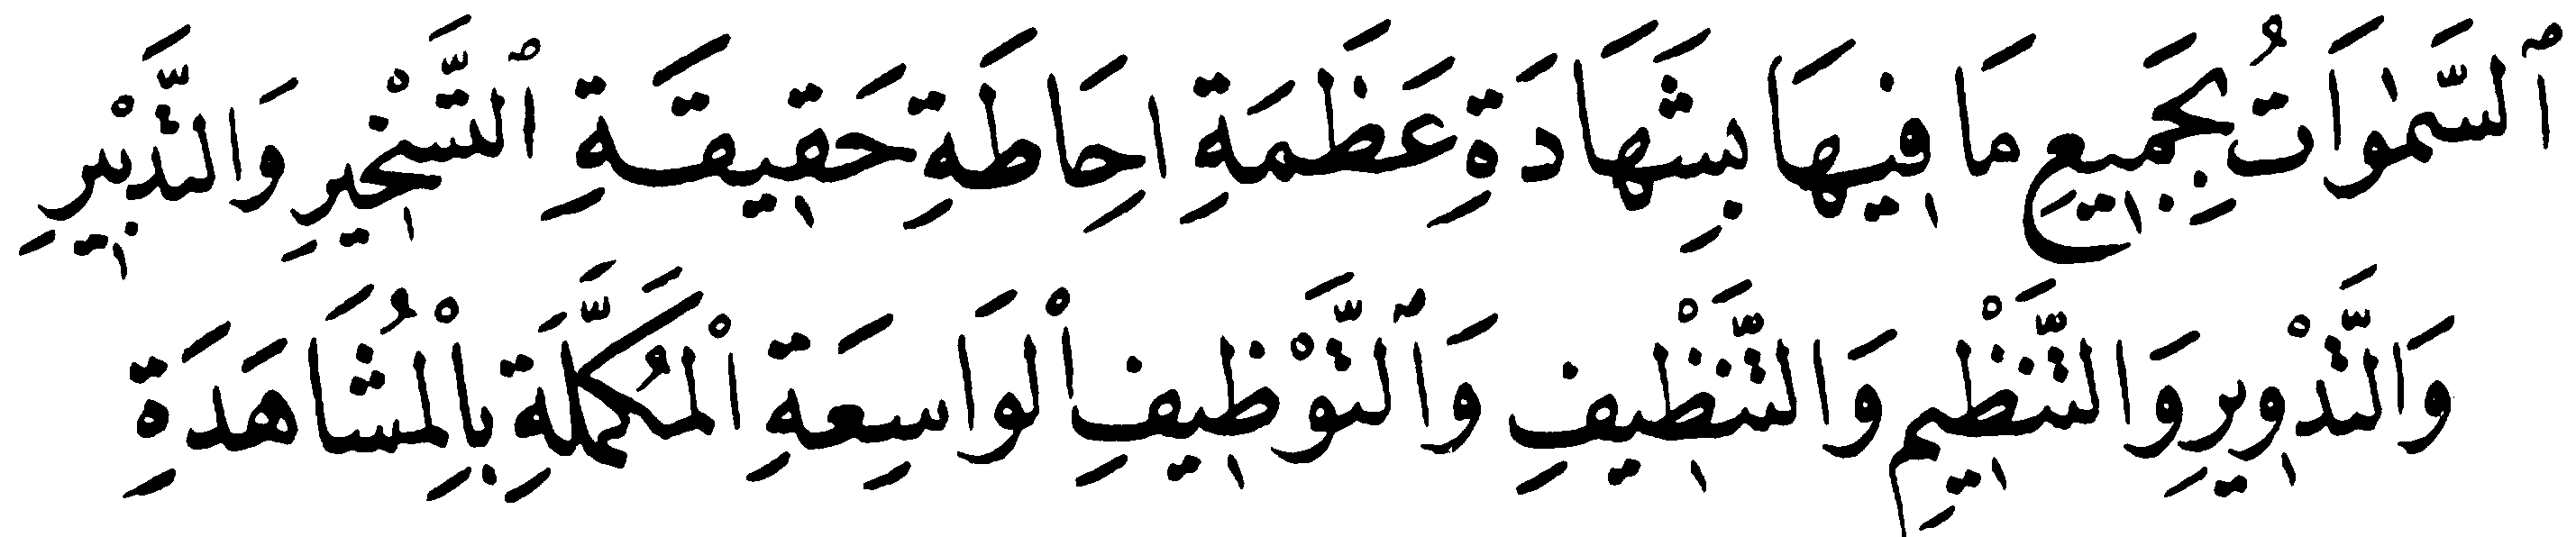 ٱلسَّمٰوَاتُ بِجَمِيعِ مَا فِيهَا بِشَهَادَةِ عَظَمَةِ اِحَاطَةِ حَقِيقَةِ ٱلتَّسْخِيرِ وَالتَّدْبِيرِ
وَالتَّدْوِيرِ وَالتَّنْظِيمِ وَالتَّنْظِيفِ وَٱلتَّوْظِيفِ اْلوَاسِعَةِ اْلمُكَمَّلَةِ بِاْلمُشَاهَدَةِ